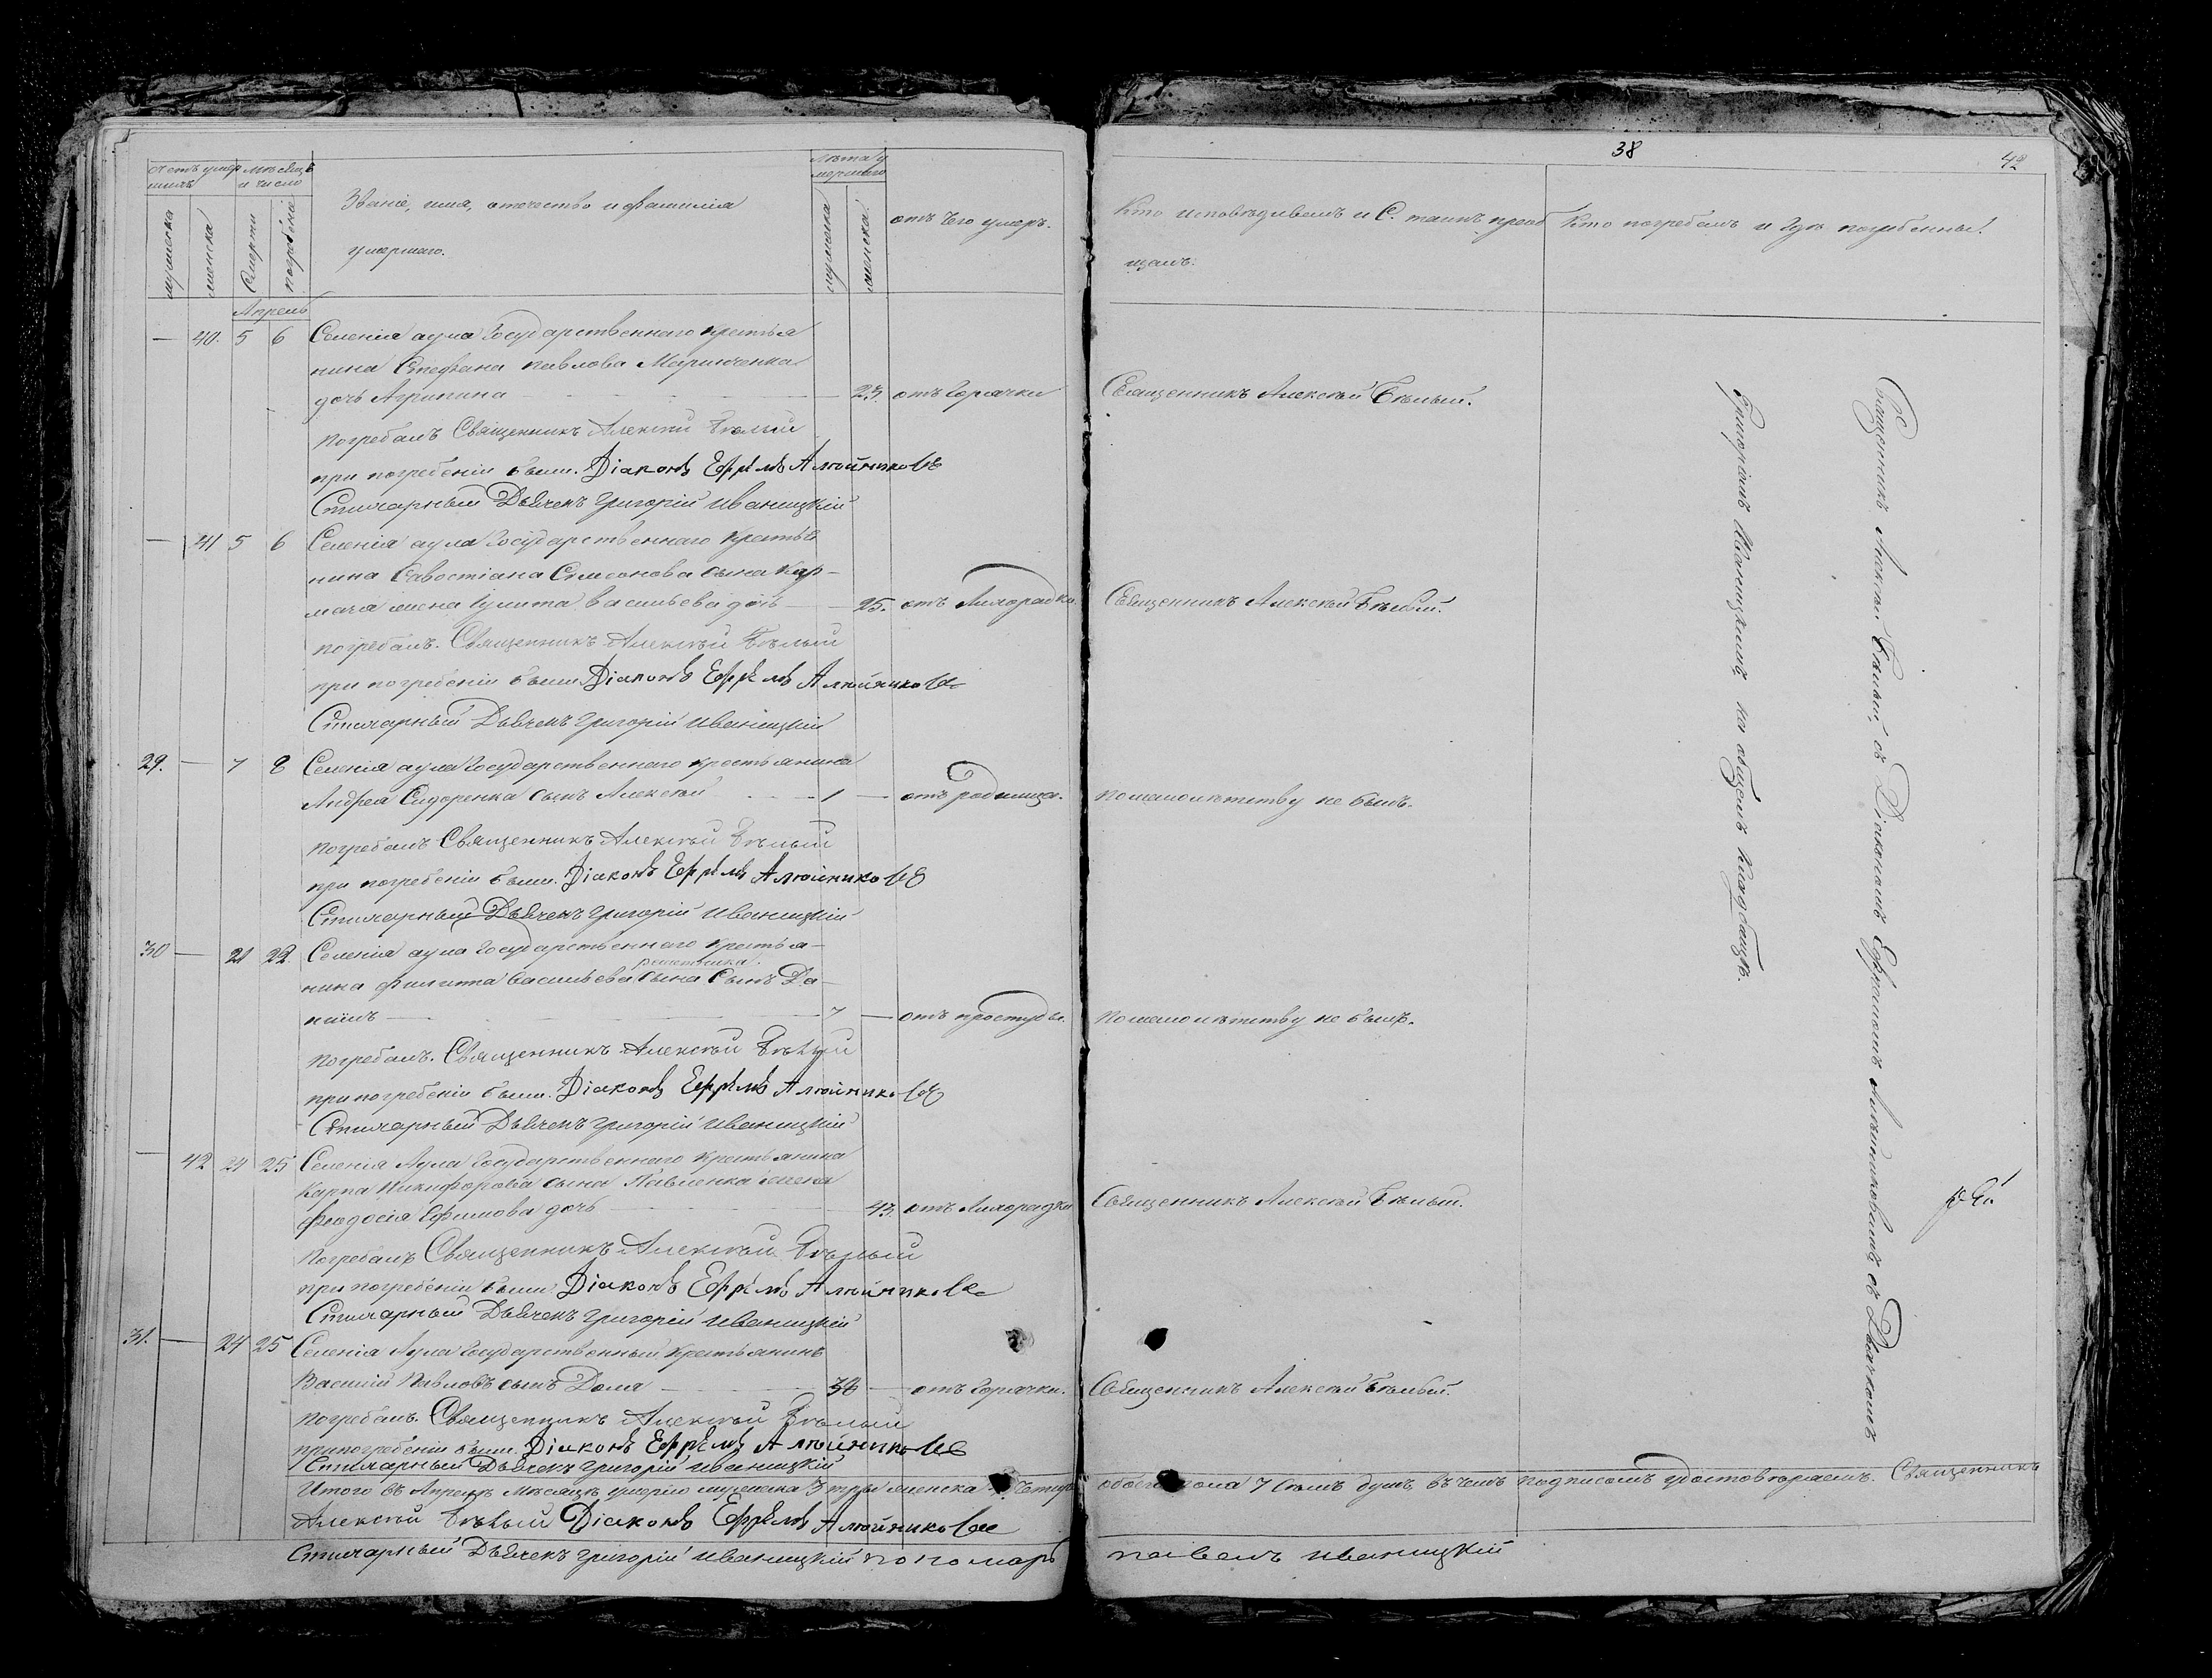 38
42
Счетъ умер
шихъ
Мѣсяцъ
и число
Званіе, имя, отечество и фамилія
умершаго.
Лѣта у
мершаго
отъ чего умеръ.
Кто исповѣдывалъ и С. таинъ пріоб
щалъ.
Кто погребалъ и гдѣ погребенны.
мужеска
женска
Смерти
погребенія
мужеска
женска
Апрель
— 40. 5 6 Селенія аула Государственнаго крестья
нина Стефана Павлова Маринченка
дочь Агрипина — 23. отъ Горячки Священникъ Алексѣй Бѣлый.
погребалъ Священникъ Алексѣй Бѣлый
при погребеніи были. Діаконъ Ефремъ Алюйниковъ
Стихарный Дьячекъ Григорій Иваницкій
— 41 5 6 Селенія аула Государственнаго крестья
нина Савостіана Симеонова сына Кор-
мача жена Іулита Васильева дочь — 25. отъ Лихорадки Священникъ Алексѣй Бѣлый.
погребалъ. Священникъ Алексѣй Бѣлый
при погребеніи были Діаконъ Ефремъ Алюйниковъ
Стихарный Дьячекъ Григорій Иваницкій
29. — 7 8 Селенія аула Государственнаго крестьянина
Андрея Сидоренка сынъ Алексѣй 1 — отъ родимца. по малолѣтству не былъ.
погребалъ Священникъ Алексѣй Бѣлый
при погребеніи были. Діаконъ Ефремъ Алюйниковъ
Стихарный Дьячекъ Григорій Иваницкій
30 — 21 22. Селенія аула Государственнаго крестья-
нина Филиппа Васильева сына Сынъ Да-
ніилъ — 7 — отъ простуды. по малолѣтству не былъ.
погребалъ. Священникъ Алексѣй Бѣлый
при погребеніи были. Діаконъ Ефремъ Алюйниковъ
Стихарный Дьячекъ Григорій Иваницкій
— 42 24 25 Селенія Аула Государственнаго крестьянина
Карпа Никифорова сына Павленка жена
Феодосія Ефимова дочь — 43. отъ Лихорадки Священникъ Алексѣй Бѣлый.
погребалъ Священникъ Алексѣй Бѣлый
при погребеніи были Діаконъ Ефремъ Алюйниковъ
Стихарный Дьячекъ Григорій Иваницкій
31. — 24 25 Селенія Аула Государственный крестьянинъ
Василій Павловъ сынъ Доля — 38 — отъ Горячки. Священникъ Алексѣй Бѣлый.
погребалъ. Священникъ Алексѣй Бѣлый
при погребеніи были. Діаконъ Ефремъ Алюйниковъ
Стихарный Дьячекъ Григорій Иваницкій
Священникъ Алексѣй Бѣлый, съ Діакономъ Ефремомъ Алюйниковымъ съ Дьячкомъ
Григоріемъ Иваницкимъ, на общемъ кладбищѣ.
Итого въ Апрелѣ Мѣсяцѣ умерло мужеска 3 три женска четыре обоего пола 7 семь душъ, въ чемъ подписомъ удостовѣряемъ. Священникъ
Алексѣй Бѣлый Діаконъ Ефремъ Алюйниковъ
Стихарный Дьячекъ Григорій Иваницкій пономарь павелъ иваницкій